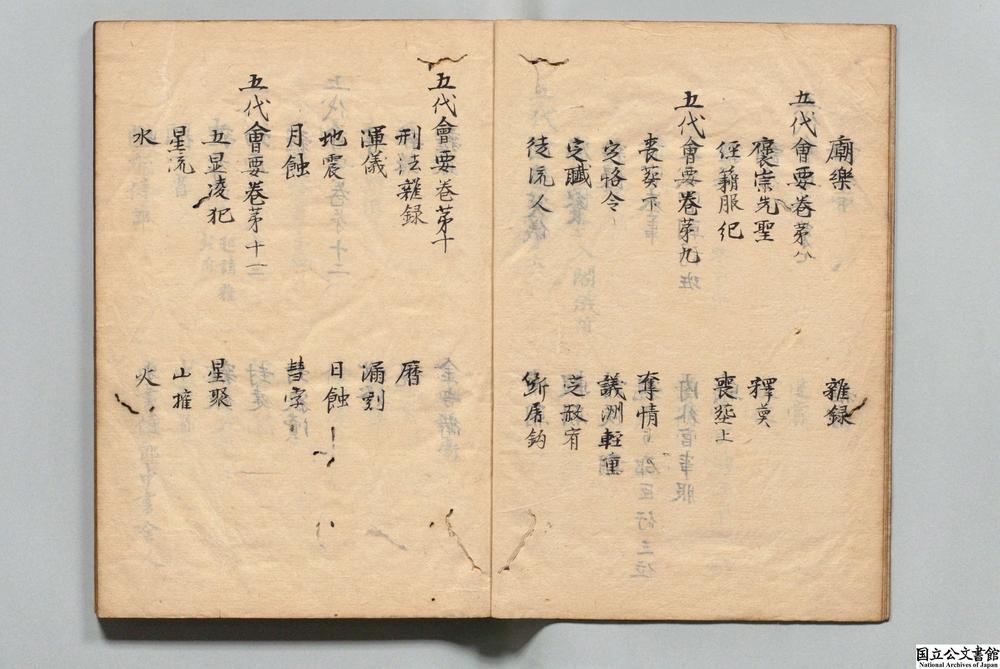 廟樂 雜録
五代會要卷苐八
褒崇先聖 釋奠
經籍服紀 喪塟上
五代會要卷苐九
喪葵下 奪情
定格令 議刑輕重
定贓 定赦宥
徒流人 断屠鈎
五代會要卷苐十
刑法雜録 曆
渾儀 漏刻
地震 日蝕
月蝕 彗孛
五代會要卷苐十一
五星凌犯 星聚
星流 山摧
水 火
国立公文書館
National Archives of Japan